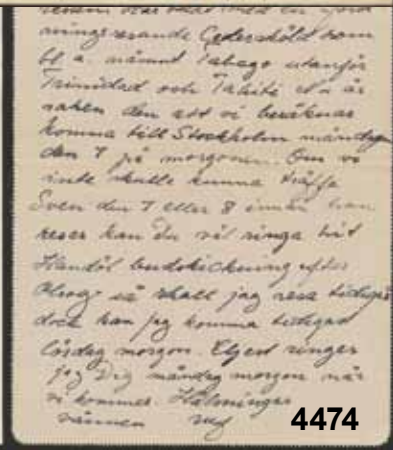 resan
ningsresande Cedersköld som
bl a. nämnt Tabago utanför
Trinidad och Tahiti. Nu är
saken den att vi beräknar
komma till Stockholm måndagen
den 7 på morgonen. Om vi
inte skulle kunna träffa
Sven den 7 eller 8 innan han
reser kan Du väl ringa hit
Handöl budskickning efter
så skall jag resa tidigare
dock kan jag komma tidigast
lördag morgon. Eljest ringer
jag Dig måndag morgon när
vi kommer. Hälsningar
vännen
4474